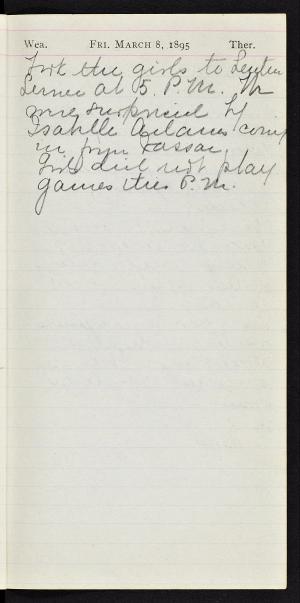 Wea. FRI. MARCH 8, 1895 Ther.
Took the girls to Lenten
Service at 5 P.M. We
were surprised by
Isabelle Adams coming
in from Vassar.
Girls did not play
games this P.M.